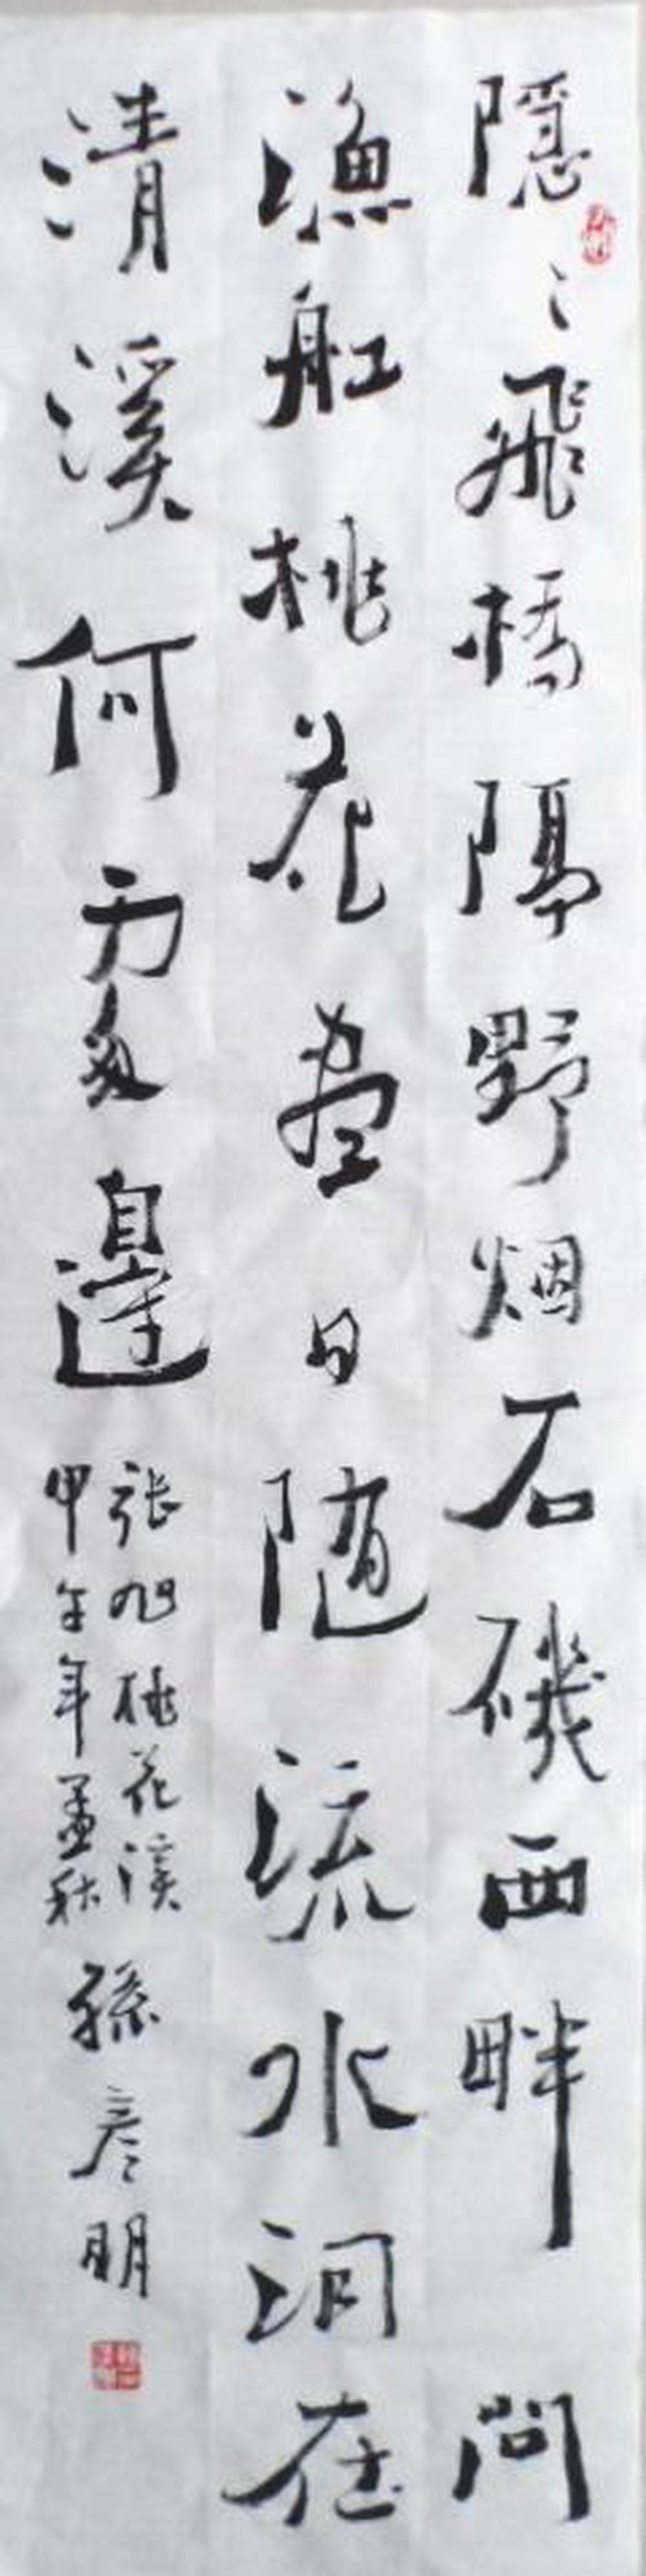 隱〻飛橋隔野烟石磯西畔問
漁舡桃花盡日随流水洞在
清溪何處邊
張旭桃花溪
甲午年孟秋
孫彦明